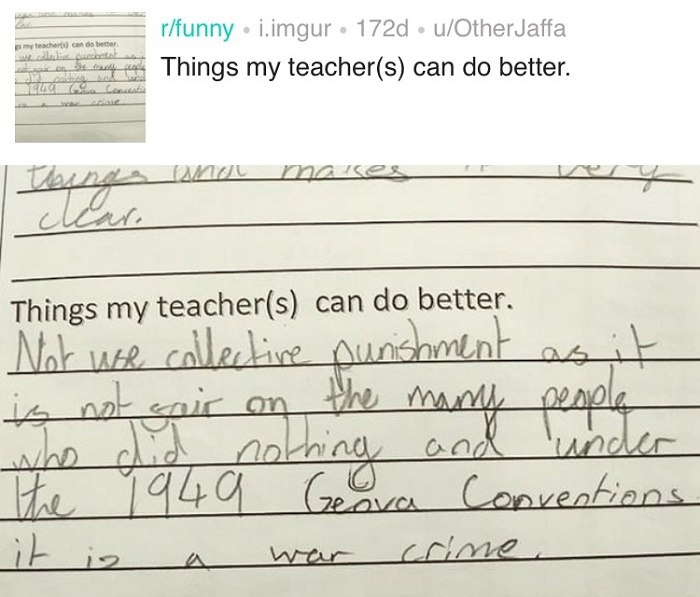 r/funny • i.imgur • 172d • u/OtherJaffa
Things my teacher(s) can do better.
things and makes it very
clear.
Things my teacher(s) can do better.
Not use collective punishment as it
is not fair on the many people
who did nothing and under
the 1949 Genova Conventions
it is a war crime.